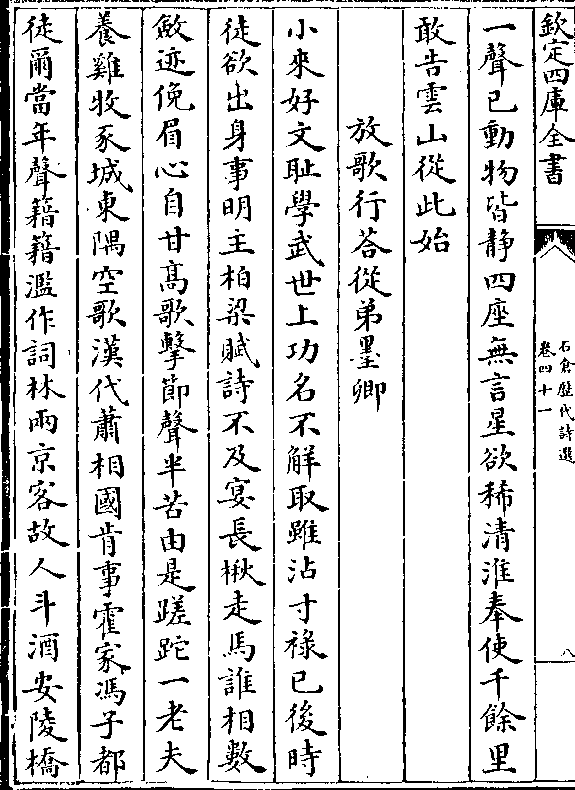 欽定四庫全書
石倉歷代詩選
卷四十一
八
一聲已動物皆靜四座無言星欲稀清淮奉使千餘里
敢告雲山從此始
放歌行荅從弟墨卿
小來好文耻學武世上功名不解取雖沾寸禄已後時
徒欲出身事明主柏梁賦詩不及宴長楸走馬誰相數
斂迹俛眉心自甘髙歌擊節聲半苦由是蹉跎一老夫
養雞牧豕城東隅空歌漢代蕭相國肯事霍家馮子都
徒爾當年聲籍籍濫作詞林兩京客故人斗酒安陵橋